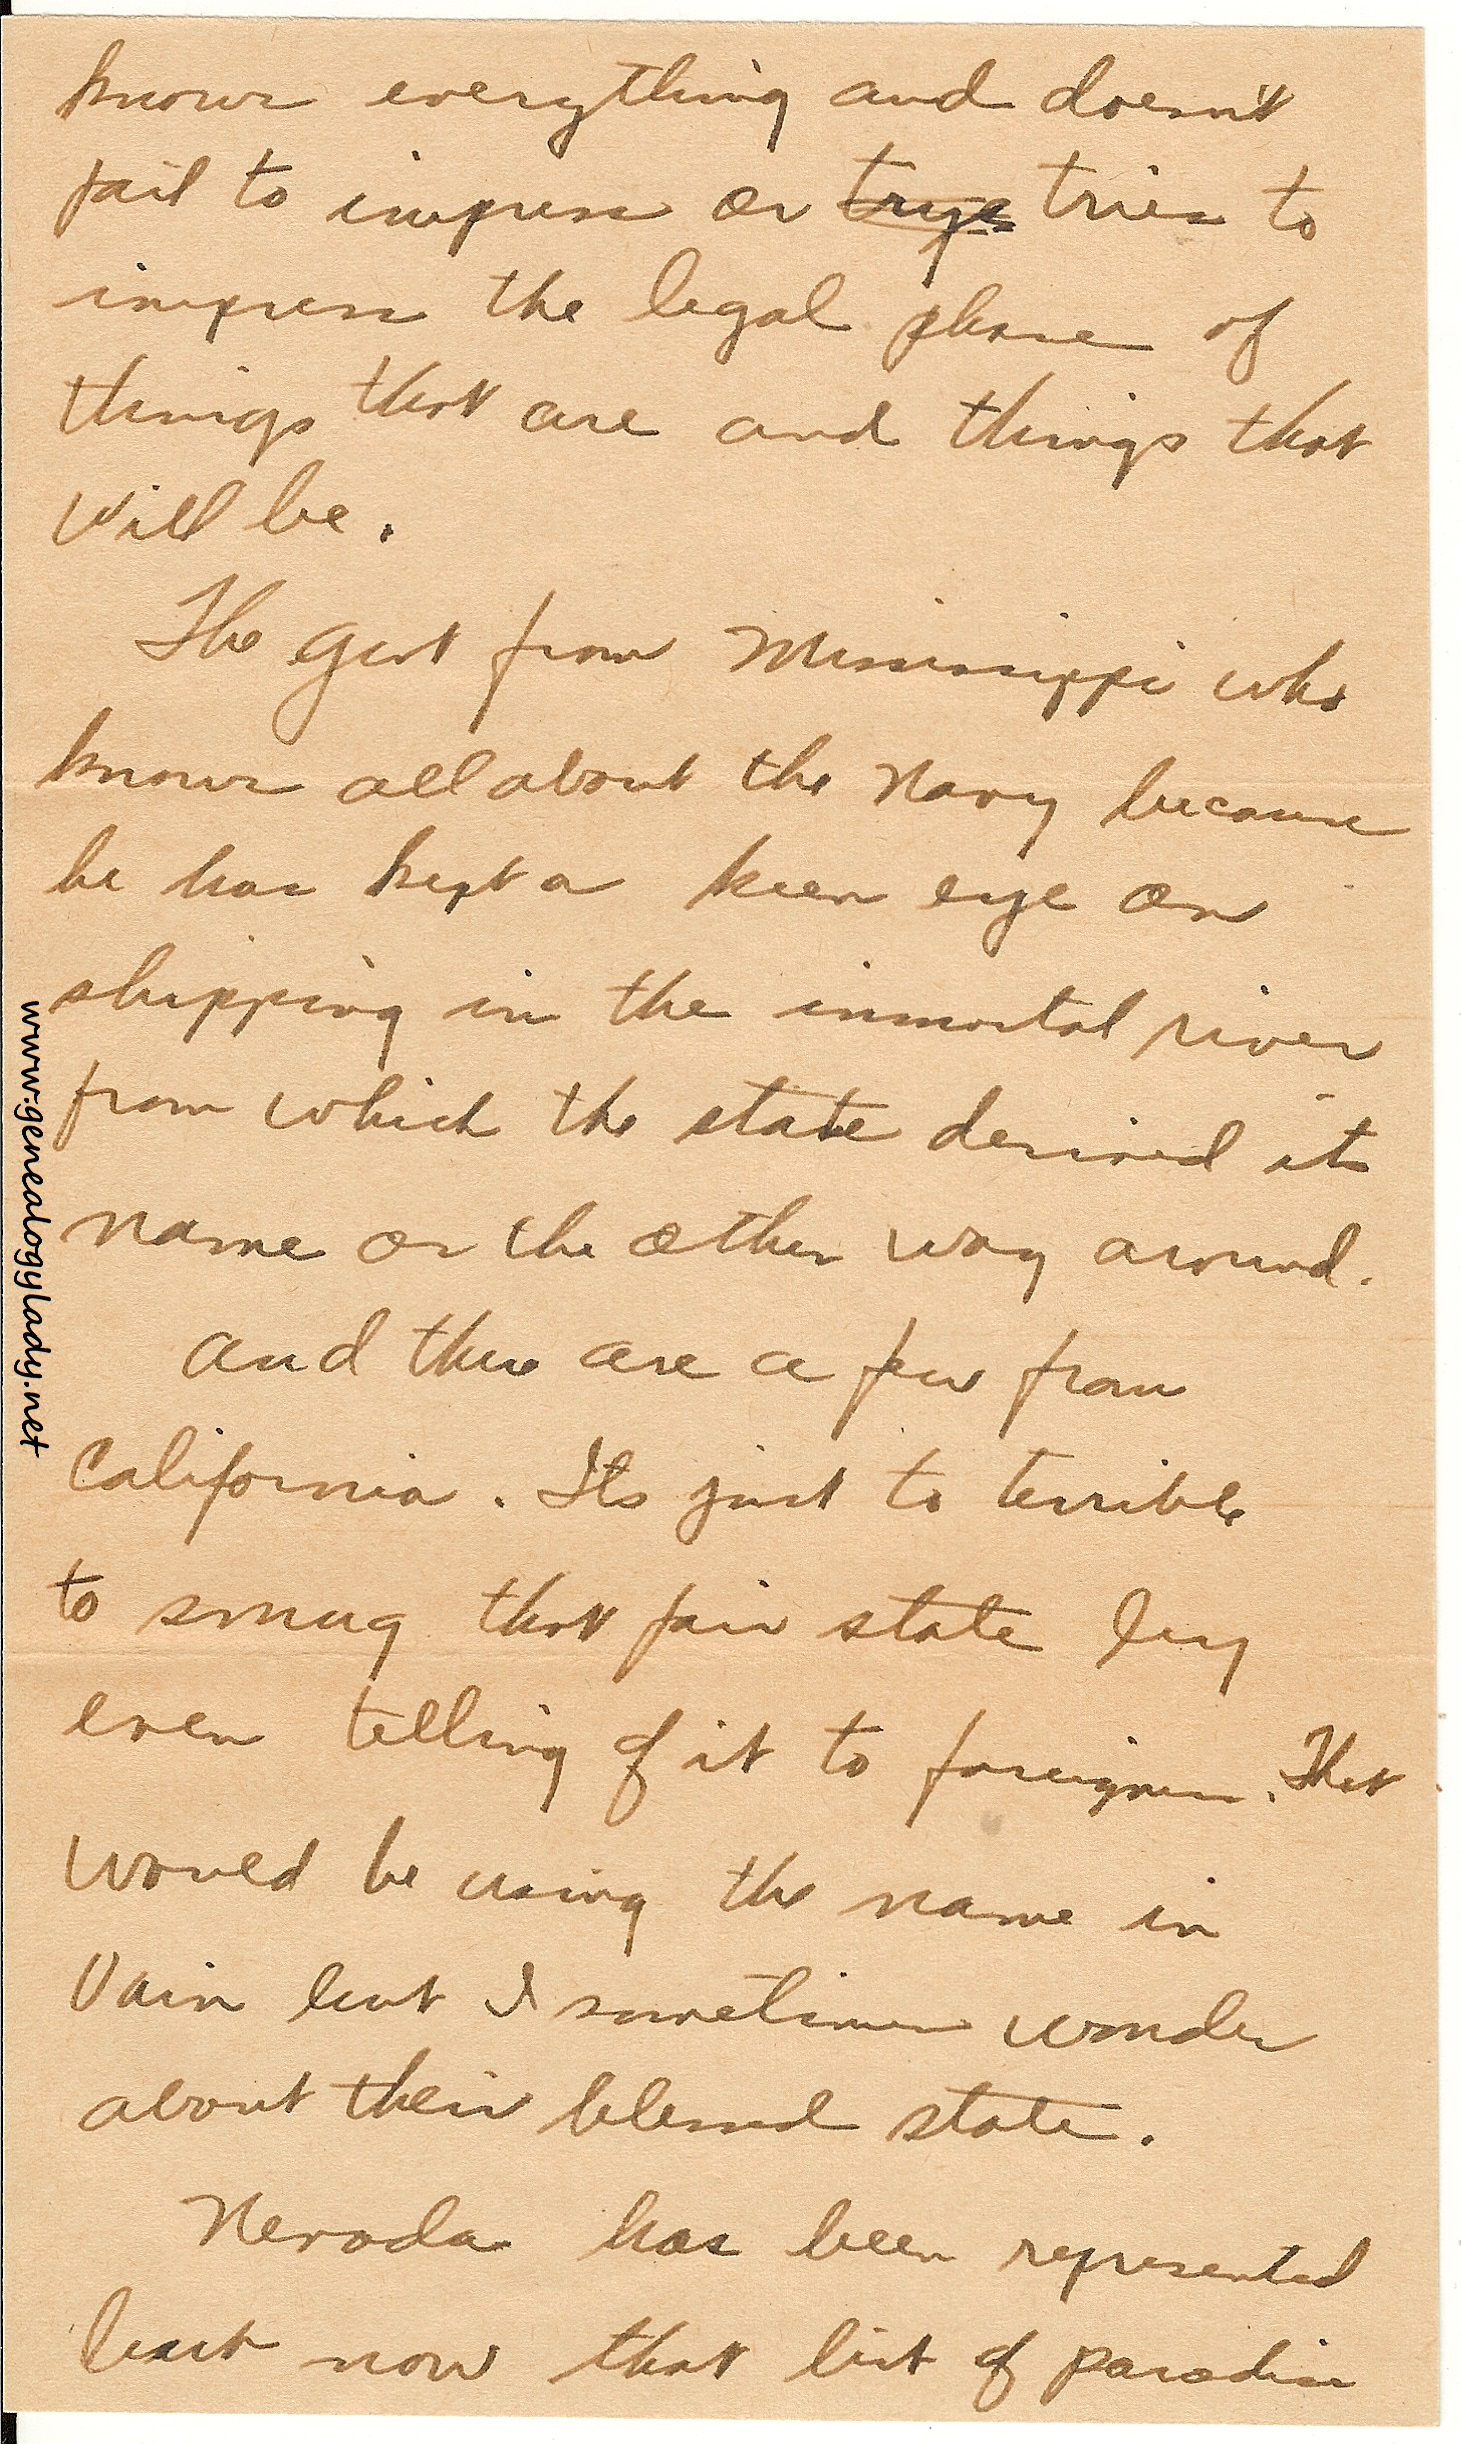 knows everything and doesn't
fail to impress or trys tries to
impress the legal phase of
things that are and things that
will be.
The gent from Mississippi who
knows all about the Navy because
he has kept a keen eye on
shipping in the immortal river
from which the state derived it
name or the other way around.
And there are a few from
California. Its just to terrible
to smug that fair state by
even telling of it to foreigners. That
would be using the name in
vain but I sometimes wonder
about their blessed state.
Nevada has been represented
but now that bit of paradise
www.genealogylady.net